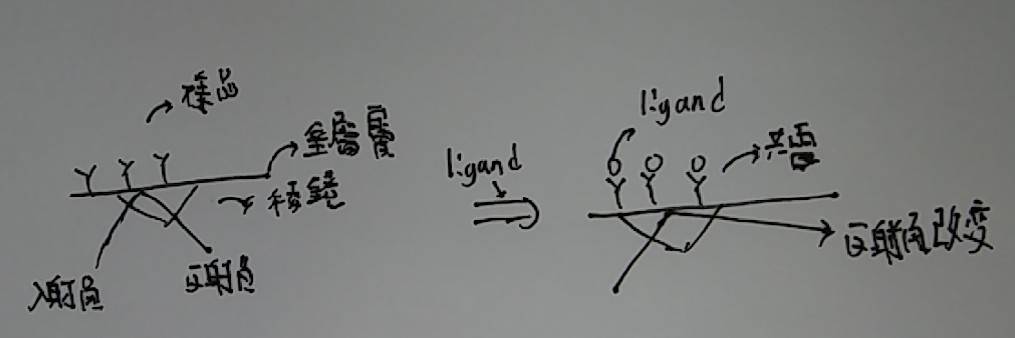 樣品
金屬膜
稜鏡
入射角
反射角
ligand
ligand
共雷
反射角改变